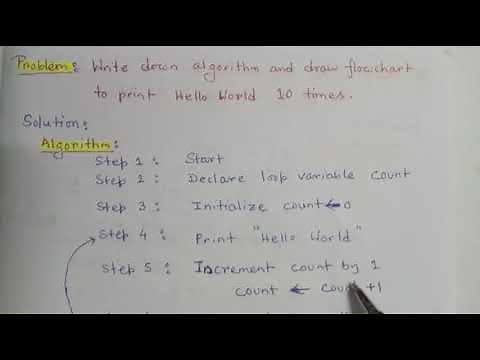 Problem: Write down algorithm and draw flowchart
to print Hello World 10 times.
Solution:
Algorithm:
Step 1 : Start
Step 2 : Declare loop variable count
Step 3 : Initialize count ← 0
Step 4 : Print "Hello World"
Step 5 : Increment count by 1
count ← count +1